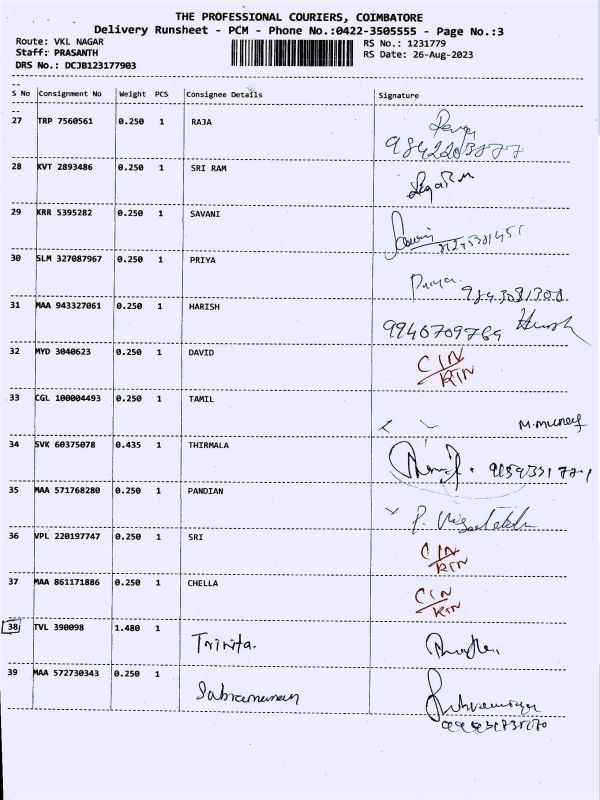 THE PROFESSIONAL COURIERS, COIMBATORE
Delivery Runsheet - PCM - Phone No.:0422-3505555 - Page No.:3
Route: VKL NAGAR
RS No.: 1231779
Staff: PRASANTH
RS Date: 26-Aug-2023
DRS No.: DCJB123177903
S No Consignment No Weight PCS Consignee Details Signature
27 TRP 7560561 0.250 1 RAJA
28 KVT 2893486 0.250 1 SRI RAM
29 KRR 5395282 0.250 1 SAVANI
30 SLM 327087967 0.250 1 PRIYA
Priya
31 MAA 943327061 0.250 1 HARISH
9940709769
32 MYD 3040623 0.250 1 DAVID
C/N
R/N
33 CGL 100004493 0.250 1 TAMIL
34 SVK 60375078 0.435 1 THIRMALA
35 MAA 571768280 0.250 1 PANDIAN
36 VPL 220197747 0.250 1 SRI
C/N
R/N
37 MAA 861171886 0.250 1 CHELLA
C/N
R/N
38 TVL 390098 1.480 1
39 MAA 572730343 0.250 1